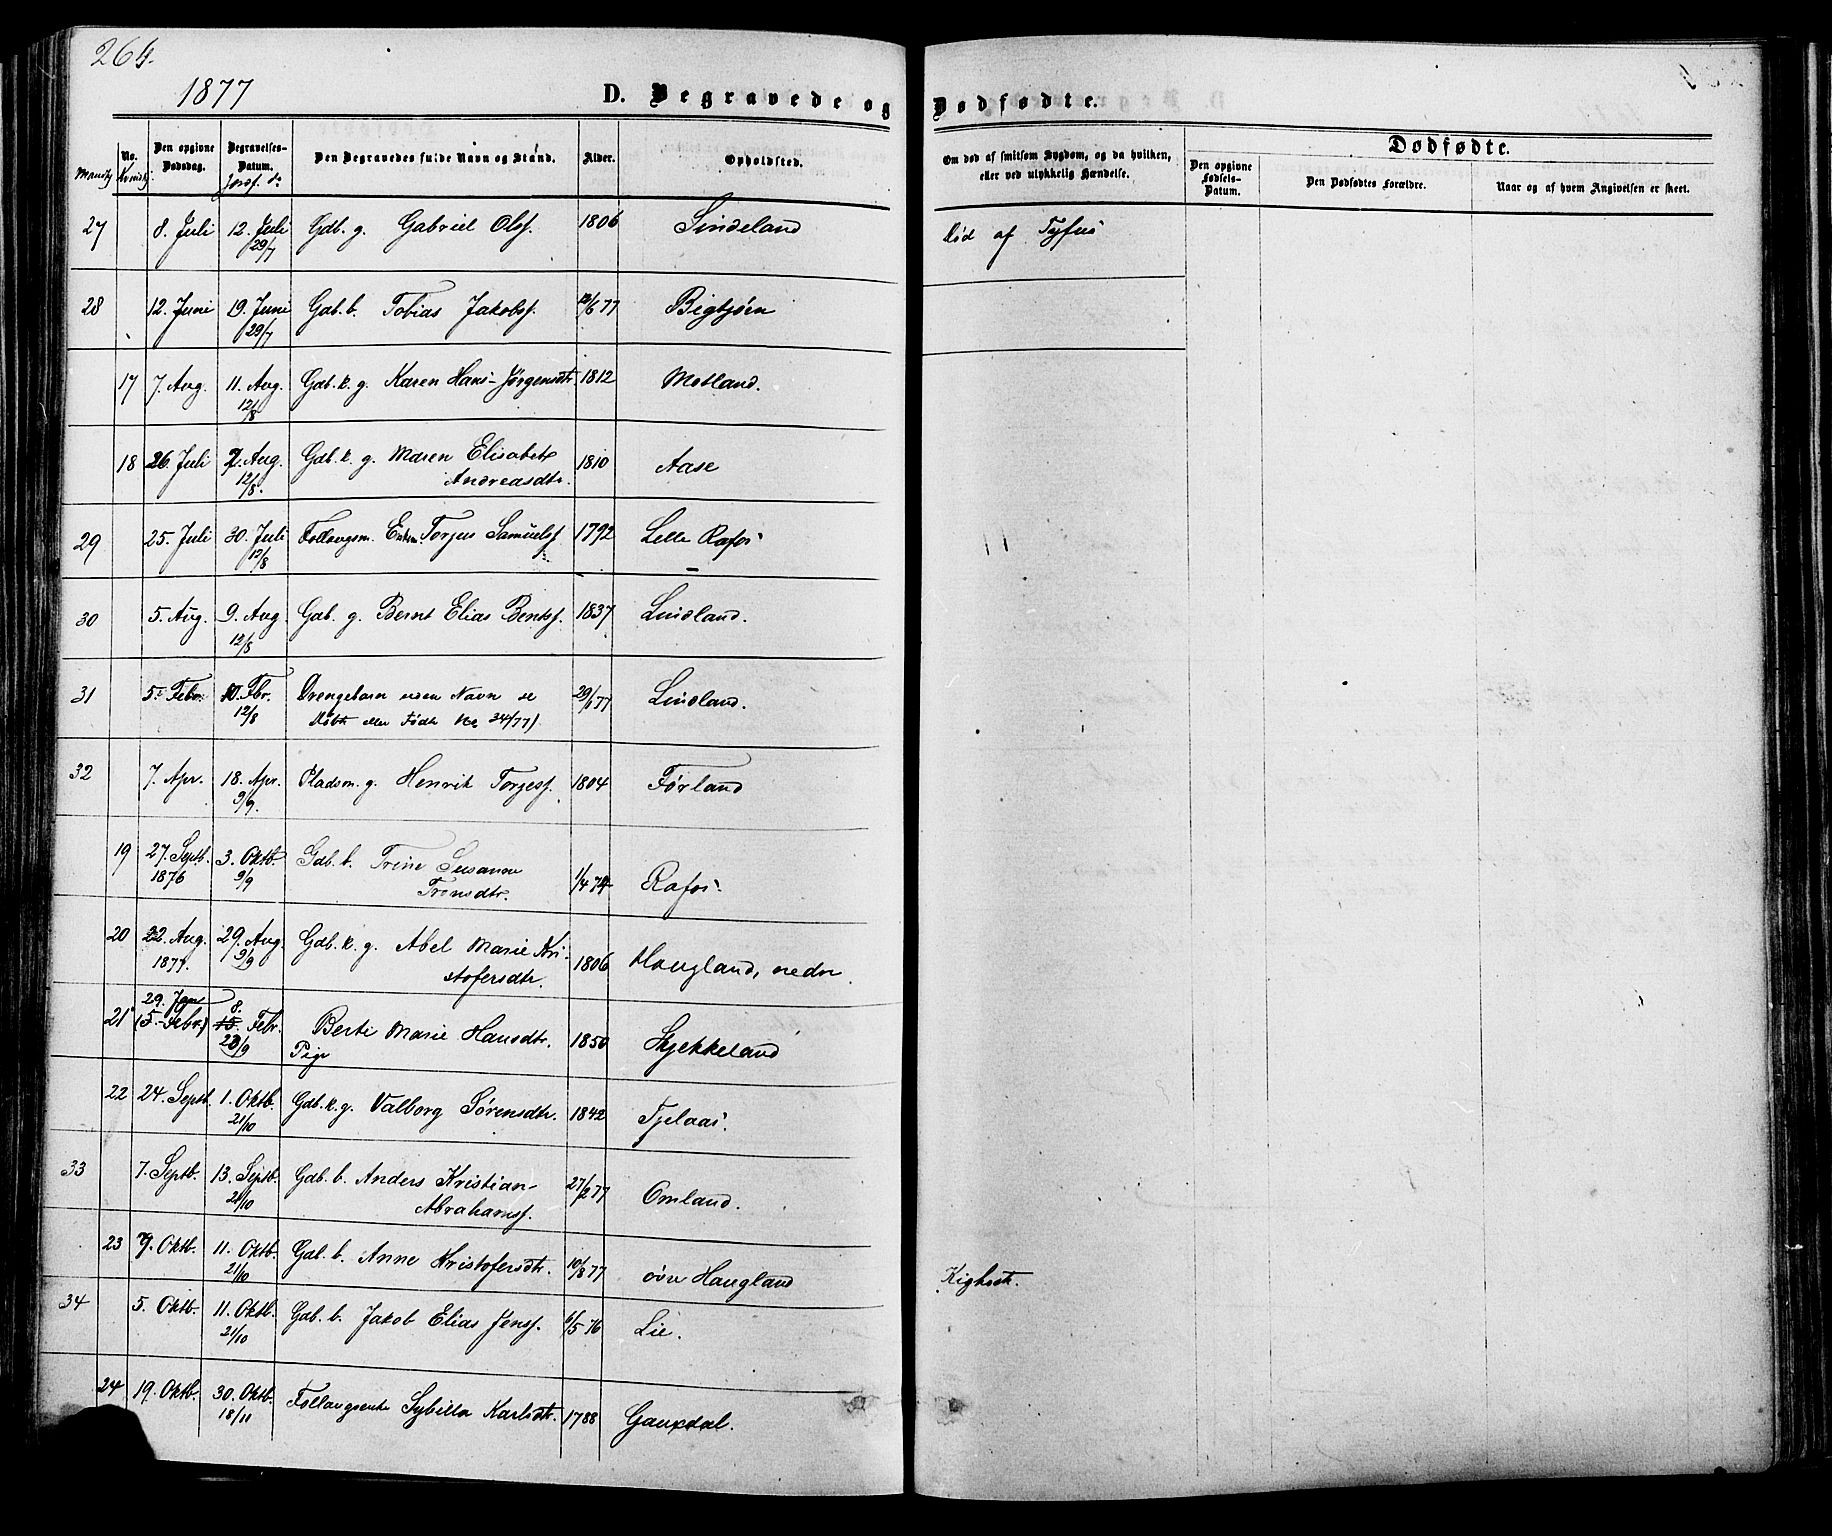 264.
1877
D. Begravede og Dødfødte.
Mandkj No. Kvindkj. Den opgivne Dødsdag. Begravelses-Datum. Jordf. d: Den Begravedes fulde Navn og Stand. Alder. Opholdsted. Om død af smitsom Sygdom, og da hvilken, eller ved ulykkelig Hændelse.
Dødfødte.
Den opgivne Fødsels-Datum. Den Dødfødtes Forældre. Naar og af hvem Angivelsen er skeet.
27 8. Juli 12. Juli Gdb. g. Gabriel Olsf. 1806 Sindeland Død af Tyfus
29/7
28 12. Juni 19. Juni Gdb. b. Tobias Jakobsf. 12/6 77 Bigtjørn
29/7
17 7. Aug. 11. Aug. Gdb. k. g. Karen Hans-Jørgensdtr 1812 Motland.
12/8
18 26. Juli 2. Aug. Gdb. k. g. Maren Elisabet 1810 Aase
12/8. Andreasdtr.
29 25. Juli 30. Juli Follougsm. Enkem. Torjus Samuelsf. 1792 Lille Rafos
12/8
30 5. Aug. 9. Aug Gdb. g. Bernt Elias Bentsf. 1837 Lindland.
12/8
31 5. Febr. 10. Fbr. Drengebarn uden Navn se 29/1 77 Lindland.
12/8 Døbte eller Fødte No 34/77)
32 7. Apr. 18. Apr. Pladsm. g. Henrik Torjesf. 1804 Førland
9/9.
19 27. Septb. 3. Oktb. Gdb. b. Trine Susanne 1/4 74 Rafos.
1876 9/9 Trinsdtr.
20 22. Aug. 29. Aug. Gdb. k. g. Abel Marie Kri- 1806 Haugland, nedre
1877. 9/9 stofersdtr.
29. Jan 8.
21 (5. Febr.) 15. Febr. Berte Marie Hansdtr. 1850 Skjekkeland
23/9 Pige
22 24. Septb. 1. Oktb. Gdb. k. g. Valborg Sørensdtr. 1842 Tjelaas.
21/10
33 7. Septb. 13. Septb. Gdb. b. Anders Kristian 27/2 77 Omland.
21/10 Abrahamsf.
23 7. Oktb. 11. Oktb. Gdb. b. Anne Kristofersdtr. 10/8 77 øvre Haugland Kighoste.
21/10
34 5. Oktb. 11. Oktb. Gdb. b. Jakob Elias Jensf. 6/5 76 Lie.
21/10
24 19. Oktb. 30. Oktb. Follougsenke Sybille Karlsdtr. 1788 Gausdal.
18/11